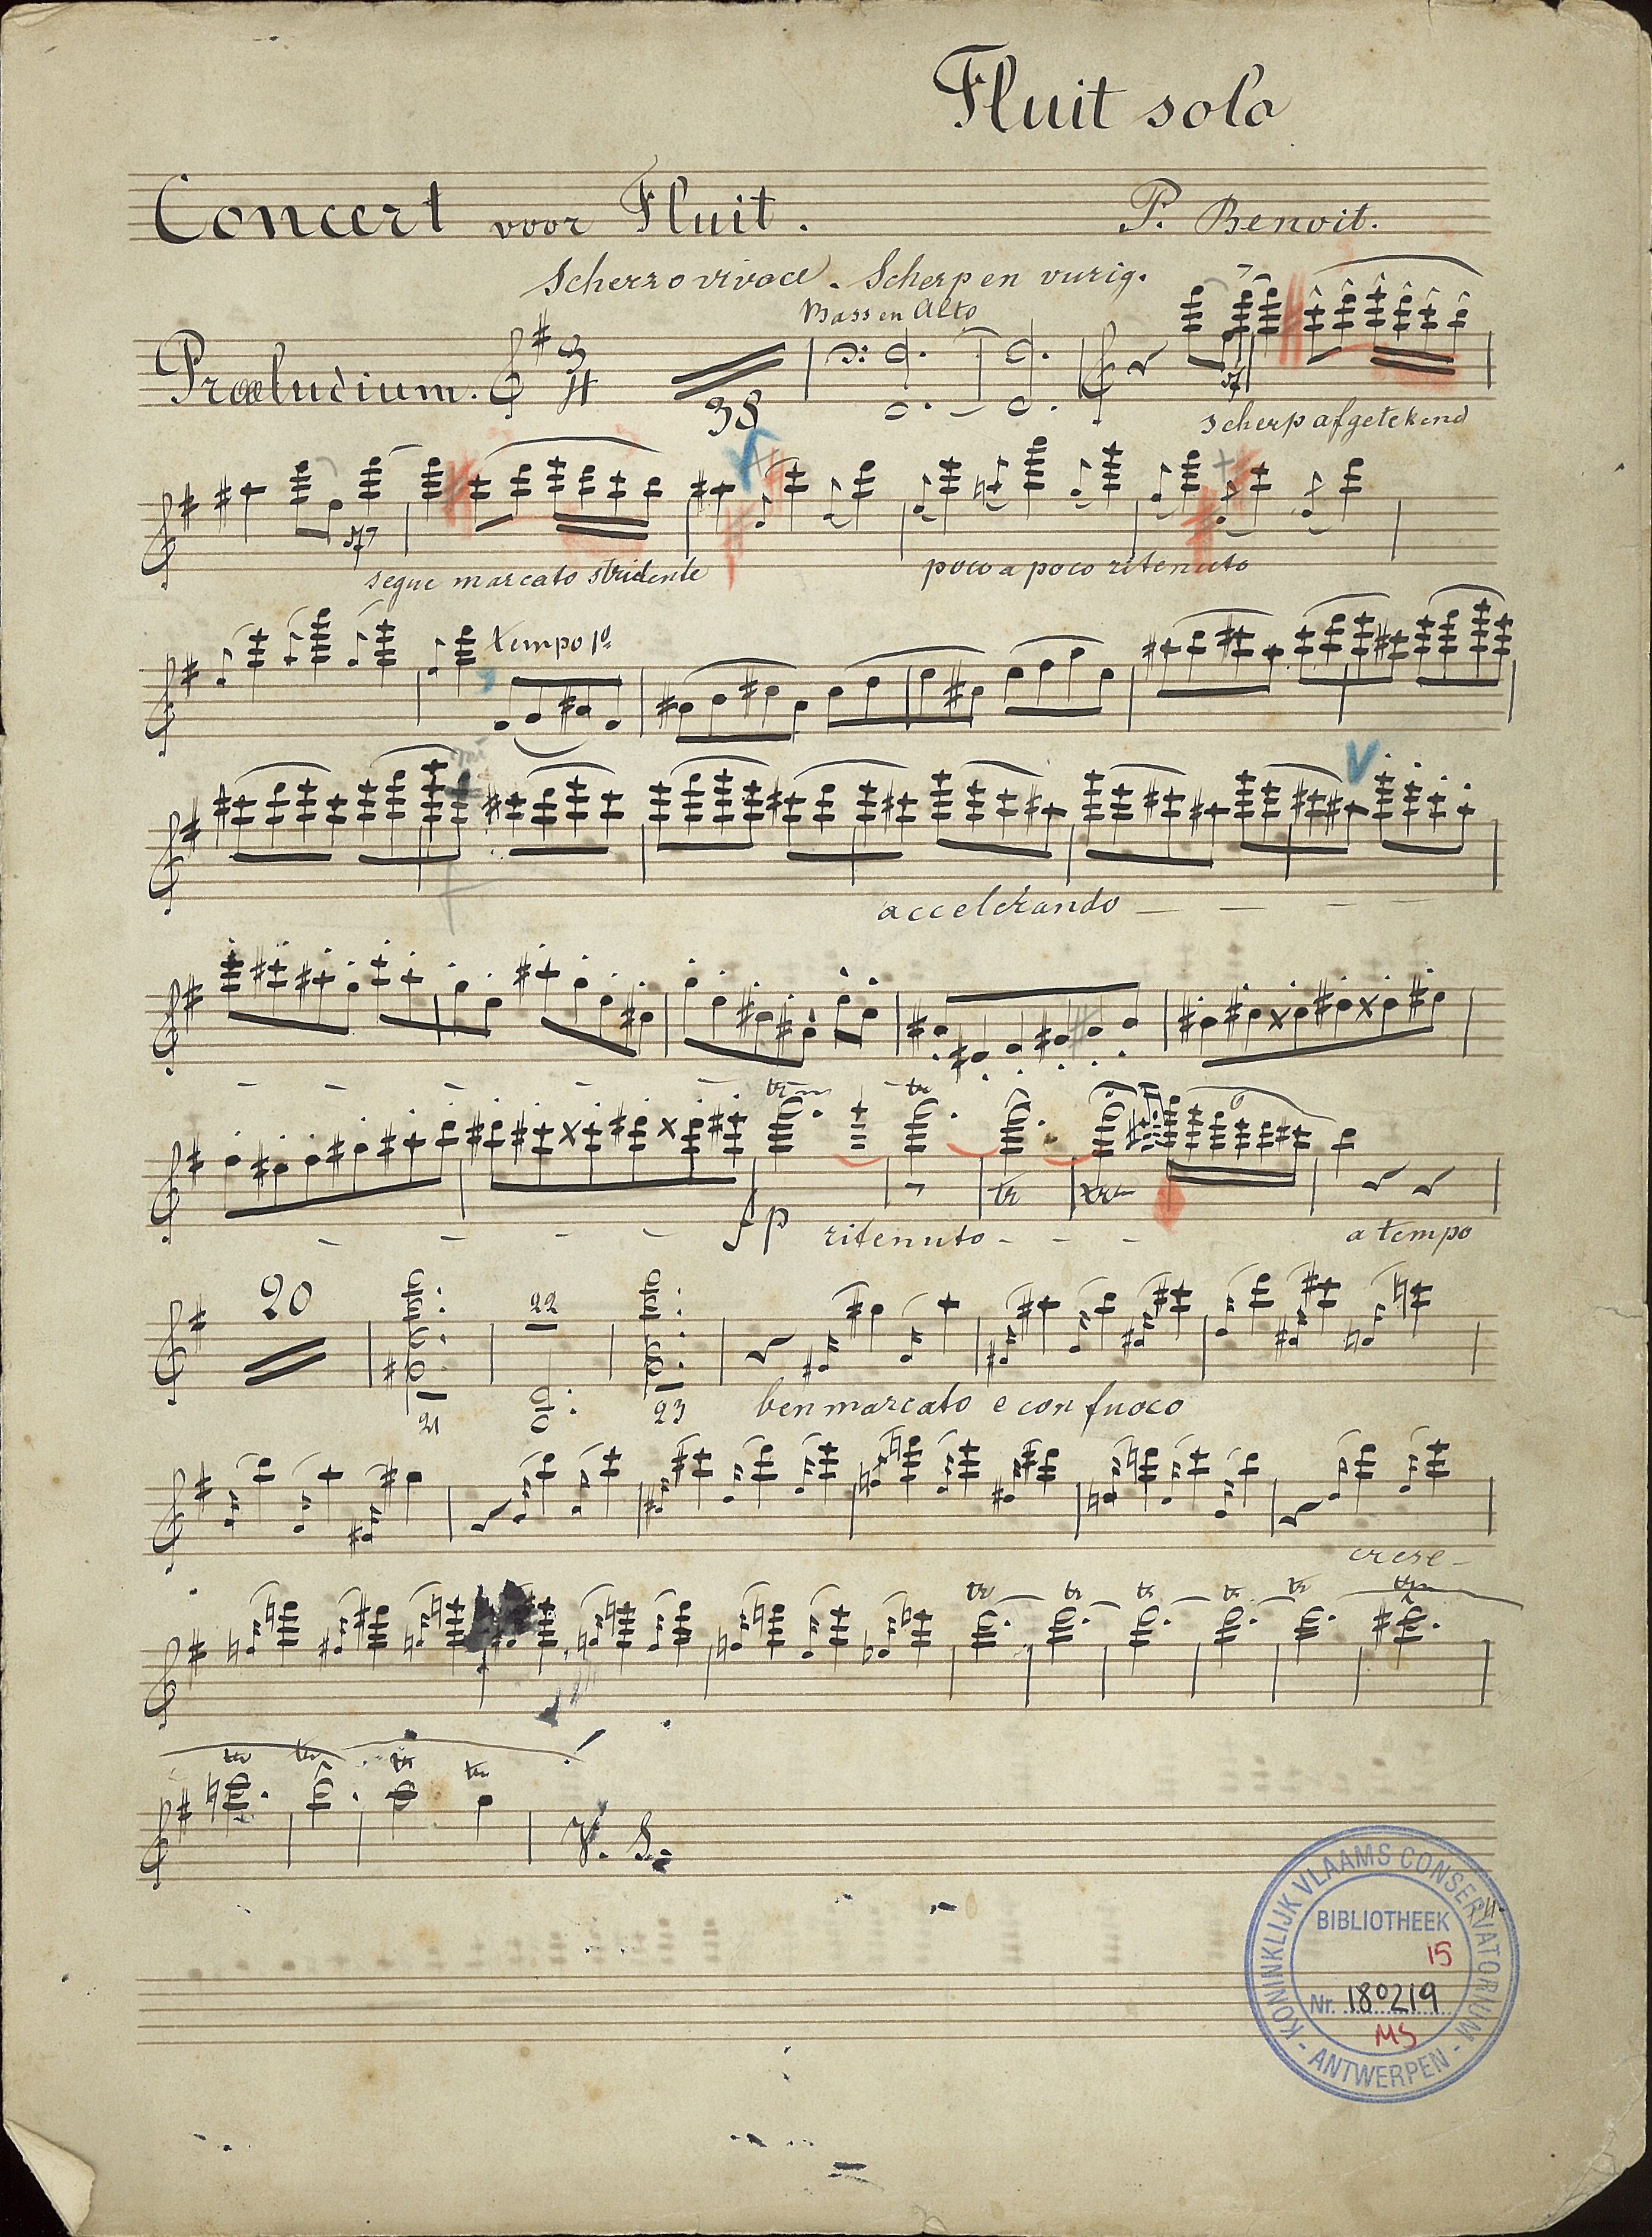 Fluit solo
Concert voor Fluit. P. Benoit.
Scherzo vivace. Scherp en vurig.
Bass en Alto
Præludium. 3 4 38
scherp afgetekend
segue marcato stridente poco a poco ritenuto
tempo 1º
accelerando
tr tr
tr tr
fp ritenuto a tempo
20 22
21 23 ben marcato e con fuoco
cresc
tr tr tr tr tr tr
tr tr tr tr
V. S.
KONINKLIJK VLAAMS CONSERVATORIUM
BIBLIOTHEEK
15
Nr. 180219
MS
- ANTWERPEN -